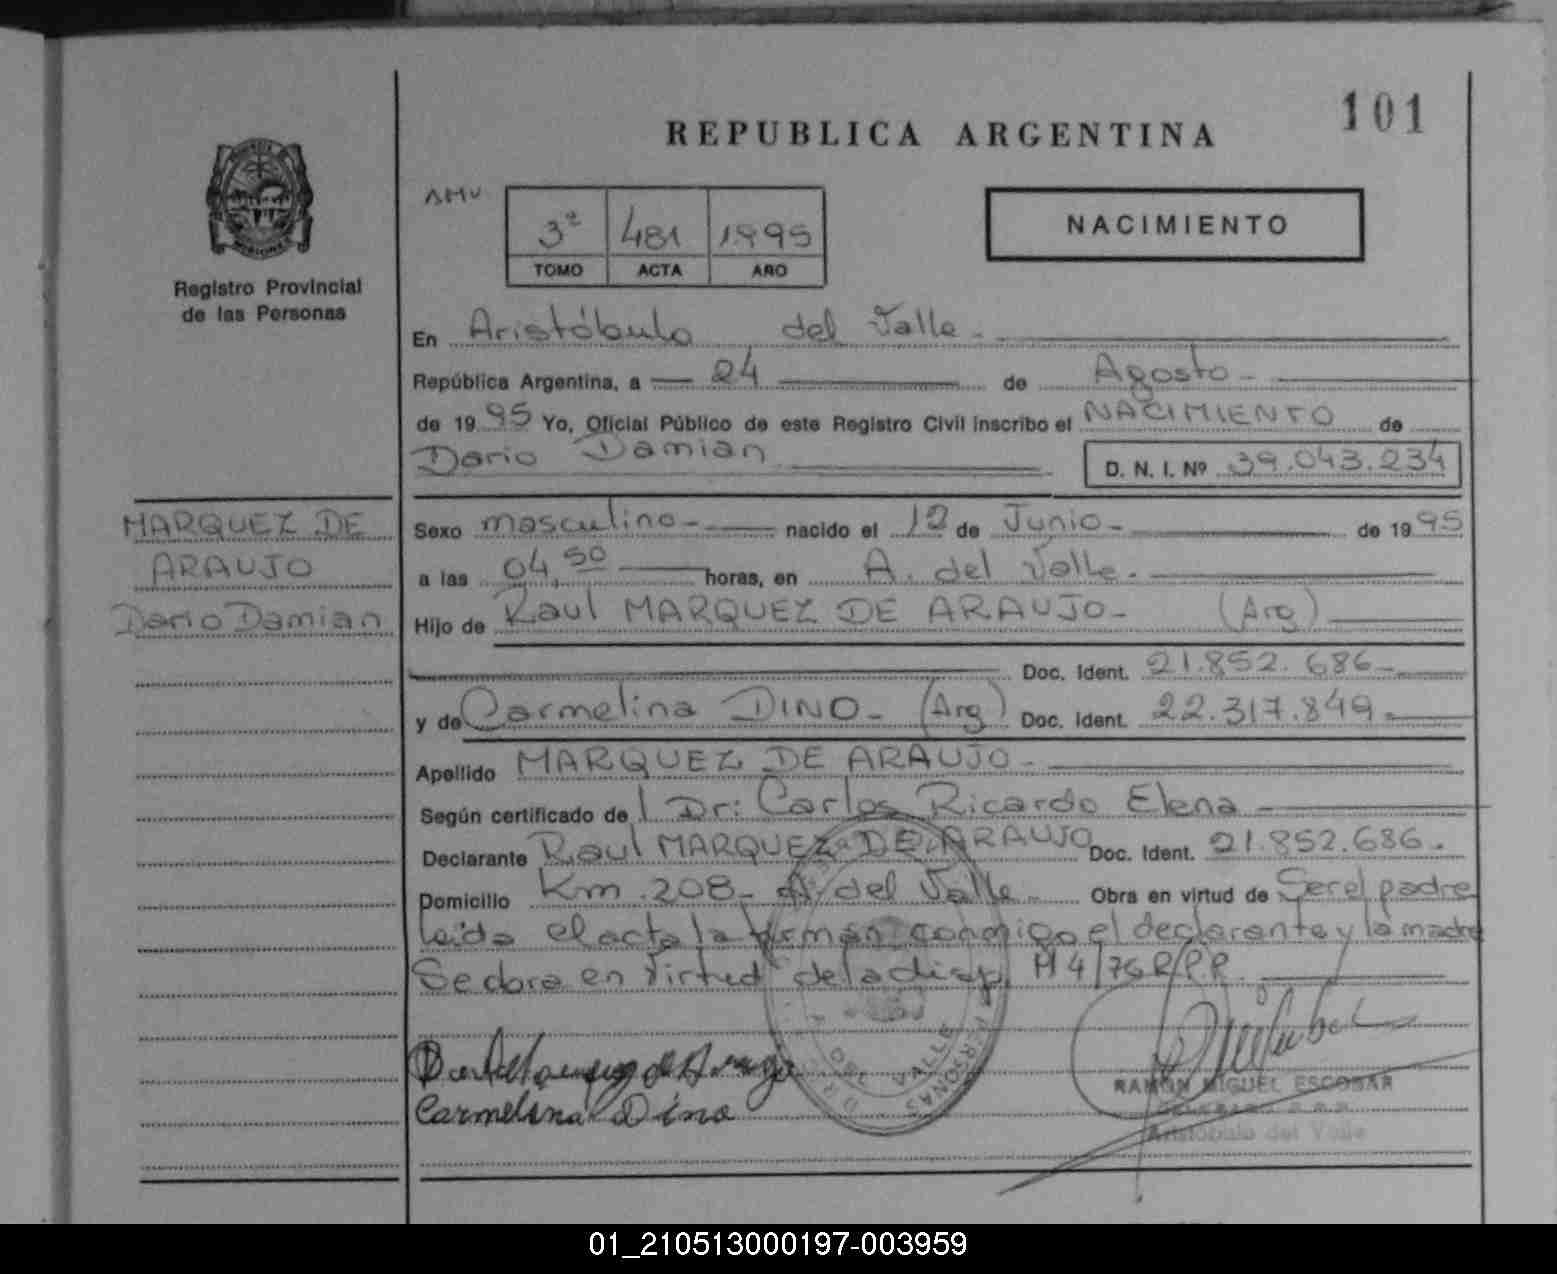 101
REPUBLICA ARGENTINA
NACIMIENTO
3ª 481 1995
TOMO ACTA AÑO
Registro Provincial
de las Personas
En Aristóbulo del Valle -
República Argentina, a 24 de Agosto -
de 1995 Yo, Oficial Público de este Registro Civil inscribo el NACIMIENTO de
Dario Damian D. N. I. Nº 39.043.234
MARQUEZ DE
ARAUJO
Dario Damian
Sexo masculino - nacido el 12 de Junio - de 1995
a las 04,50 horas, en A. del Valle -
Hijo de Raul MARQUEZ DE ARAUJO - (Arg)
Doc. Ident. 21.852.686 -
y de Carmelina DINO - (Arg) Doc. Ident. 22.317.849 -
Apellido MARQUEZ DE ARAUJO -
Según certificado de l Dr: Carlos Ricardo Elena -
Declarante Raul MARQUEZ DE ARAUJO Doc. Ident. 21.852.686.
Domicilio Km. 208 - A. del Valle - Obra en virtud de Ser el padre
leida el acta la firman conmigo el declarante y la madre
Se dara en virtud de la disp. 4/76 R.P.P.
Carmelina Dino
RAMON MIGUEL ESCOBAR
Aristóbulo del Valle
01_210513000197-003959